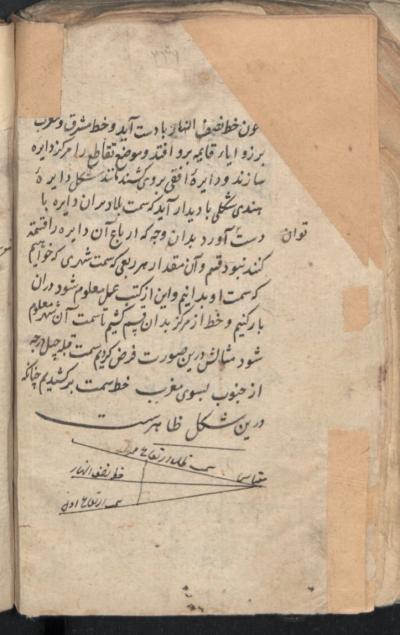 چون خط نصف النهار بادست آید و خط مشرق و مغرب
بر زوایاء قایمه برو افتد و موضع تقاطع را مرکز دایره
سازند و دایرهٔ افقی بروی کشند مانند شکل دایرهٔ
هندی شکلی با دیدار آید که سمت بلاد بران دایره با
دست آورد بدان وجه که ارباع آن دایره را قسمة
توان
کنند نود قسم و آن مقدار هر ربعی که سمت شهری که خواهیم
که سمت او بدانیم و این از کتب عمل معلوم شود دران
باز کنیم و خط از مرکز بدان قسم کشیم تا سمت آن شهر معلوم
شود مثالش درین صورت فرض کردیم سمت قبله چهل درجه
از جنوب بسوی مغرب خط سمت برکشیدیم چنانکه
درین شکل ظاهرست
سمت ظل ارتفاع
خط نصف النهار
مقیاس
سمت ارتفاع اول